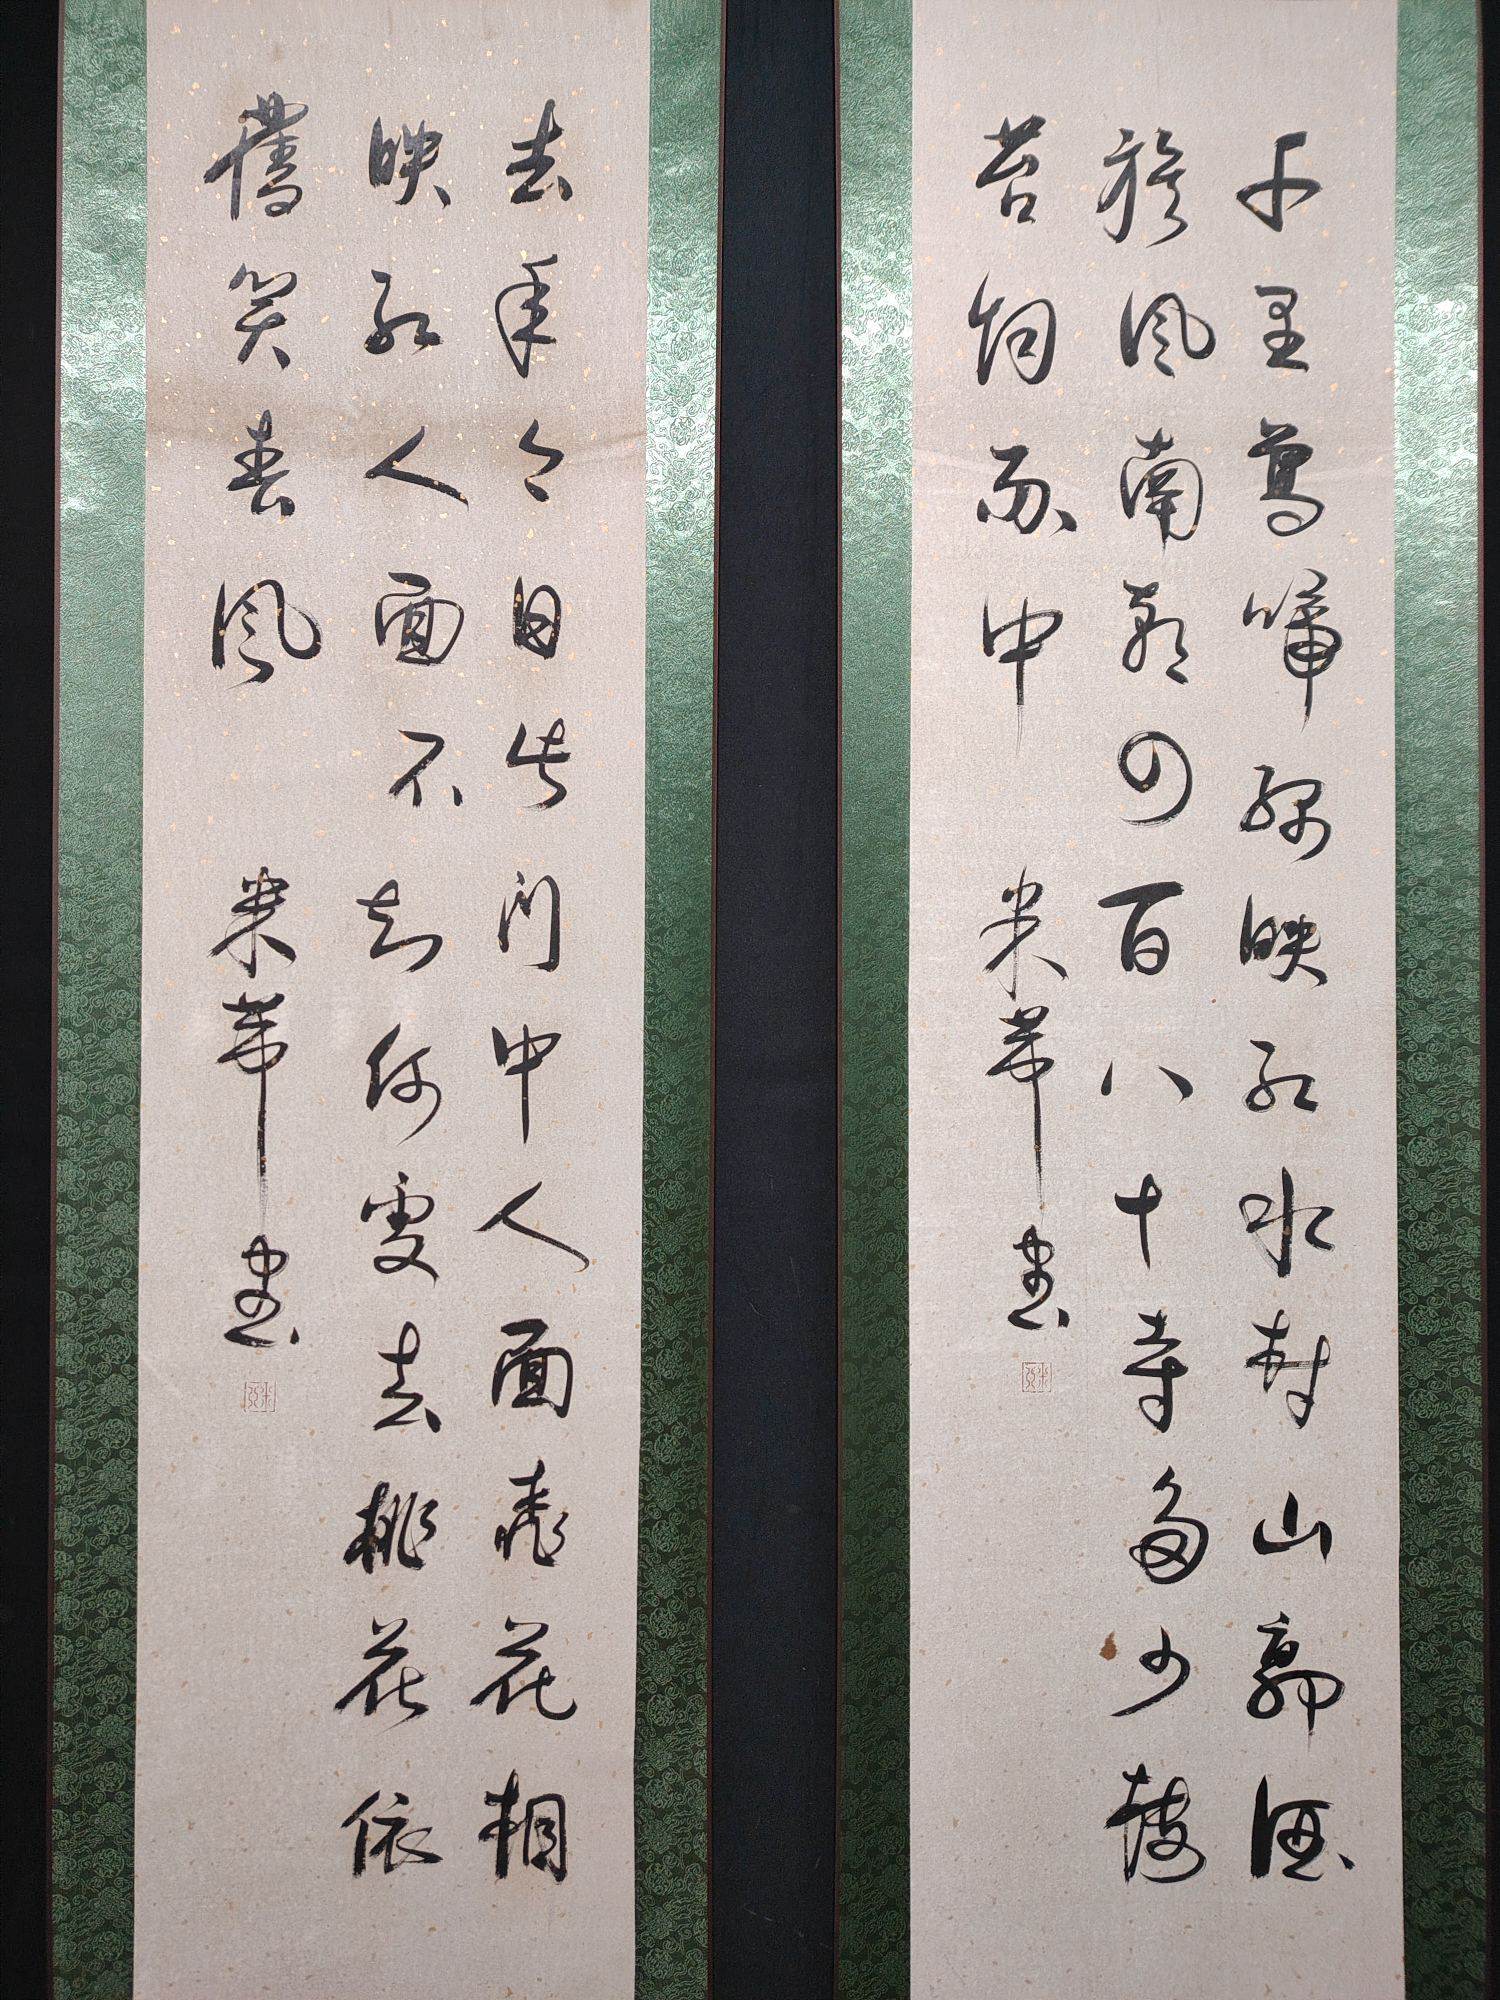 千里鶯啼綠映紅水村山郭酒
旗風南朝四百八十寺多少樓
臺烟雨中 米芾書
去年今日此門中人面桃花相
映紅人面不知何處去桃花依
舊笑春風 米芾書